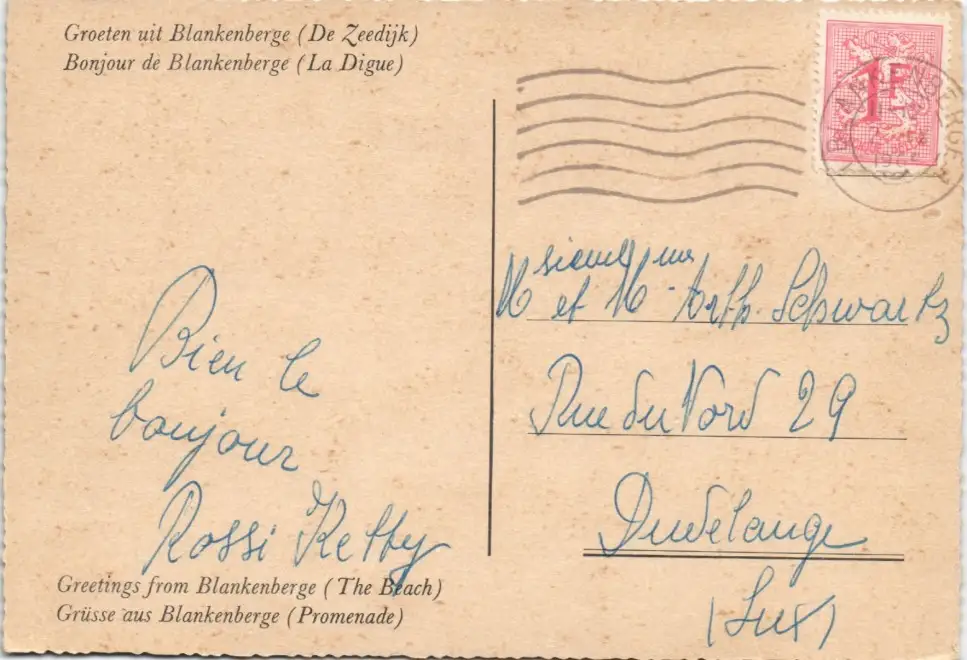 Groeten uit Blankenberge (De Zeedijk)
Bonjour de Blankenberge (La Digue)
Bien le
bonjour
Rossi Ketty
Greetings from Blankenberge (The Beach)
Grüsse aus Blankenberge (Promenade)
1F
BLANKENBERGE
Msieur et Mme Arth. Schwartz
Rue du Nord 29
Dudelange
(Lux)